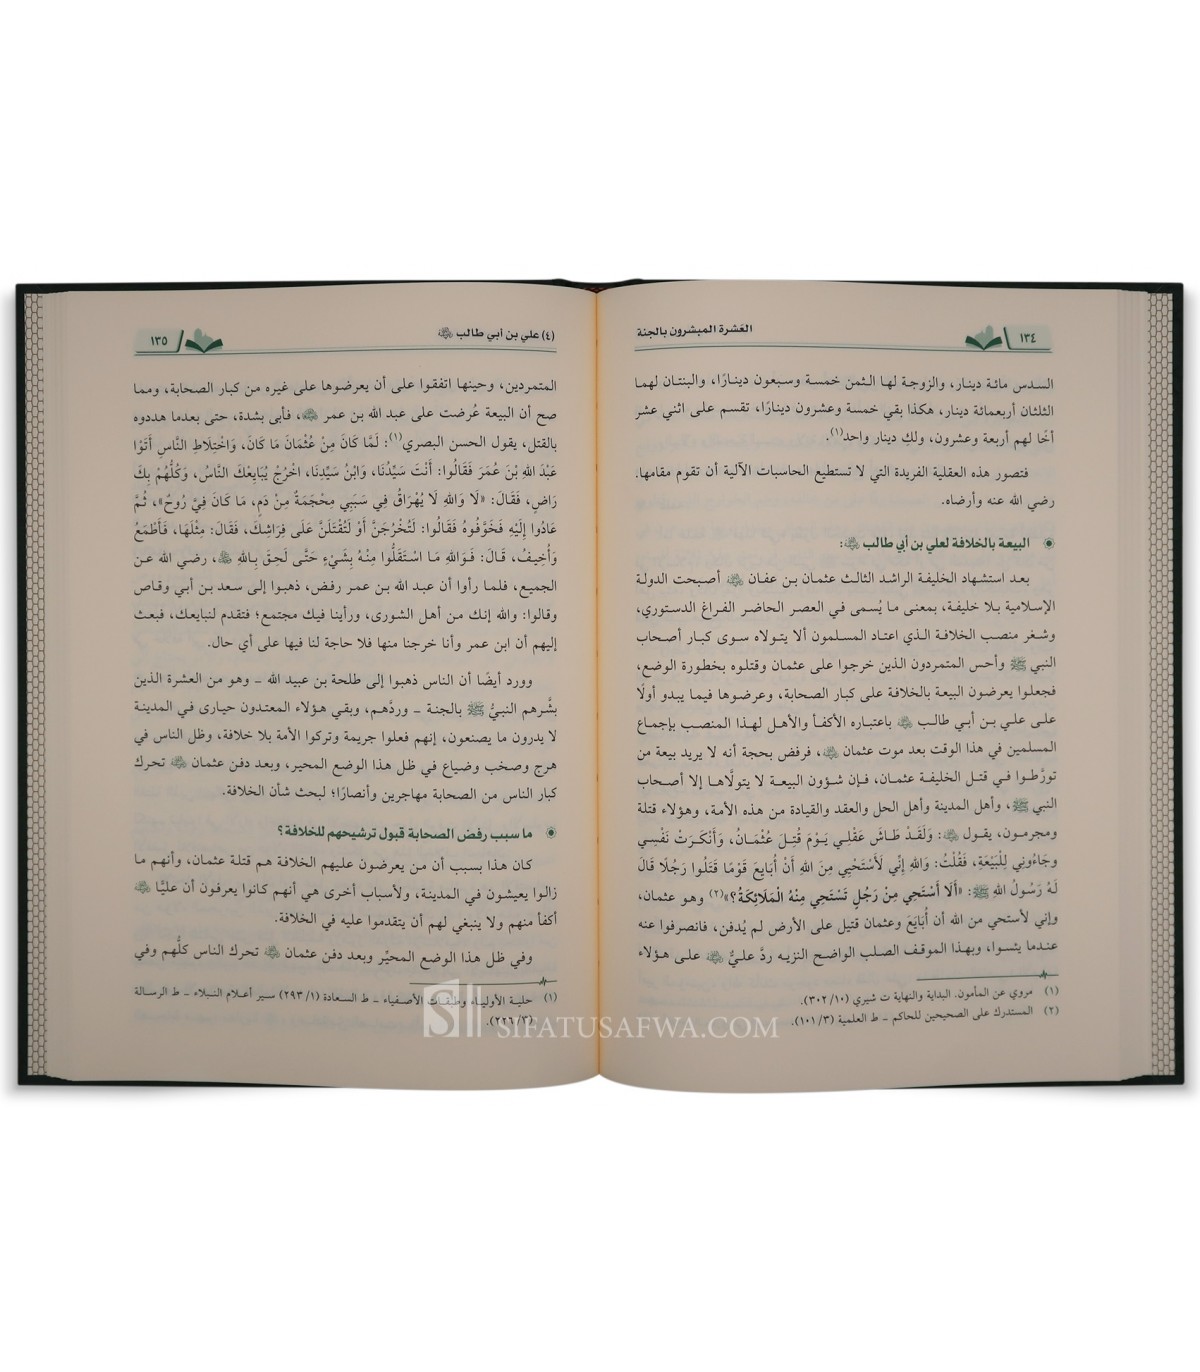 العشرة المبشرون بالجنة
١٣٤
السدس مائة دينار، والزوجة لها الثمن خمسة وسبعون دينارًا، والبنتان لهما
الثلثان أربعمائة دينار، هكذا بقي خمسة وعشرون دينارًا، تقسم على اثني عشر
أخًا لهم أربعة وعشرون، ولكِ دينار واحد(١).
فتصور هذه العقلية الفريدة التي لا تستطيع الحاسبات الآلية أن تقوم مقامها.
رضي الله عنه وأرضاه.
البيعة بالخلافة لعلي بن أبي طالب ﵁:
بعد استشهاد الخليفة الراشد الثالث عثمان بن عفان ﵁ أصبحت الدولة
الإسلامية بلا خليفة، بمعنى ما يُسمى في العصر الحاضر الفراغ الدستوري،
وشغر منصب الخلافة الذي اعتاد المسلمون ألا يتولاه سوى كبار أصحاب
النبي ﷺ وأحس المتمردون الذين خرجوا على عثمان وقتلوه بخطورة الوضع،
فجعلوا يعرضون البيعة بالخلافة على كبار الصحابة، وعرضوها فيما يبدو أولًا
على علي بن أبي طالب ﵁ باعتباره الأكفأ والأهل لهذا المنصب بإجماع
المسلمين في هذا الوقت بعد موت عثمان ﵁، فرفض بحجة أنه لا يريد بيعة من
تورَّطوا في قتل الخليفة عثمان، فإن شؤون البيعة لا يتولَّاها إلا أصحاب
النبي ﷺ، وأهل المدينة وأهل الحل والعقد والقيادة من هذه الأمة، وهؤلاء قتلة
ومجرمون، يقول ﵁: وَلَقَدْ طَاشَ عَقْلِي يَوْمَ قُتِلَ عُثْمَانُ، وَأَنْكَرَتْ نَفْسِي
وَجَاءُونِي لِلْبَيْعَةِ، فَقُلْتُ: وَاللهِ إِنِّي لَأَسْتَحْيِي مِنَ اللهِ أَنْ أُبَايِعَ قَوْمًا قَتَلُوا رَجُلًا قَالَ
لَهُ رَسُولُ اللهِ ﷺ: «أَلَا أَسْتَحِي مِنْ رَجُلٍ تَسْتَحِي مِنْهُ الْمَلَائِكَةُ؟»(٢) وهو عثمان،
وإني لأستحي من الله أن أُبَايَعَ وعثمان قتيل على الأرض لم يُدفن، فانصرفوا عنه
عندما يئسوا، وبهذا الموقف الصلب الواضح النزيه ردَّ عليٌّ ﵁ على هؤلاء
(١) مروي عن المأمون. البداية والنهاية ت شيري (١٠/ ٣٠٢).
(٢) المستدرك على الصحيحين للحاكم – ط العلمية (٣/ ١٠١).
(٤) علي بن أبي طالب ﵁
١٣٥
المتمردين، وحينها اتفقوا على أن يعرضوها على غيره من كبار الصحابة، ومما
صح أن البيعة عُرضت على عبد الله بن عمر ﵁، فأبى بشدة، حتى بعدما هددوه
بالقتل، يقول الحسن البصري(١): لَمَّا كَانَ مِنْ عُثْمَانَ مَا كَانَ، وَاخْتِلَاطِ النَّاسِ أَتَوْا
عَبْدَ اللهِ بْنَ عُمَرَ فَقَالُوا: أَنْتَ سَيِّدُنَا، وَابْنُ سَيِّدِنَا، اخْرُجْ يُبَايِعْكَ النَّاسُ، وَكُلُّهُمْ بِكَ
رَاضٍ، فَقَالَ: «لَا وَاللهِ لَا يُهْرَاقُ فِي سَبَبِي مِحْجَمَةٌ مِنْ دَمٍ، مَا كَانَ فِيَّ رُوحٌ»، ثُمَّ
عَادُوا إِلَيْهِ فَخَوَّفُوهُ فَقَالُوا: لَتَخْرُجَنَّ أَوْ لَتُقْتَلَنَّ عَلَى فِرَاشِكَ، فَقَالَ: مِثْلَهَا، فَأُطْمَعُ
وَأُخِيفُ، قَالَ: فَوَاللهِ مَا اسْتَقَلُّوا مِنْهُ بِشَيْءٍ حَتَّى لَحِقَ بِاللهِ ﷻ، رضي الله عن
الجميع، فلما رأوا أن عبد الله بن عمر رفض، ذهبوا إلى سعد بن أبي وقاص
وقالوا: والله إنك من أهل الشورى، ورأينا فيك مجتمع؛ فتقدم لنبايعك، فبعث
إليهم أن ابن عمر وأنا خرجنا منها فلا حاجة لنا فيها على أي حال.
وورد أيضًا أن الناس ذهبوا إلى طلحة بن عبيد الله – وهو من العشرة الذين
بشَّرهم النبيُّ ﷺ بالجنة – وردَّهم، وبقي هؤلاء المعتدون حيارى في المدينة
لا يدرون ما يصنعون، إنهم فعلوا جريمة وتركوا الأمة بلا خلافة، وظل الناس في
هرج وصخب وضياع في ظل هذا الوضع المحير، وبعد دفن عثمان ﵁ تحرك
كبار الناس من الصحابة مهاجرين وأنصارًا؛ لبحث شأن الخلافة.
ما سبب رفض الصحابة قبول ترشيحهم للخلافة؟
كان هذا بسبب أن من يعرضون عليهم الخلافة هم قتلة عثمان، وأنهم ما
زالوا يعيشون في المدينة، ولأسباب أخرى هي أنهم كانوا يعرفون أن عليًّا ﵁
أكفأ منهم ولا ينبغي لهم أن يتقدموا عليه في الخلافة.
وفي ظل هذا الوضع المحيِّر وبعد دفن عثمان ﵁ تحرك الناس كلُّهم وفي
(١) حلية الأولياء وطبقات الأصفياء – ط السعادة (١/ ٢٩٣) سير أعلام النبلاء – ط الرسالة
(٣/ ٢٢٦).
SIFATUSAFWA.COM